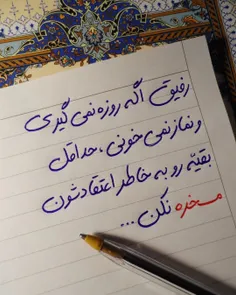 رفیق اگه روزه نمی گیری
و نماز نمی خونی، حداقل
بقیّه رو به خاطر اعتقادشون
مسخره نکن ...